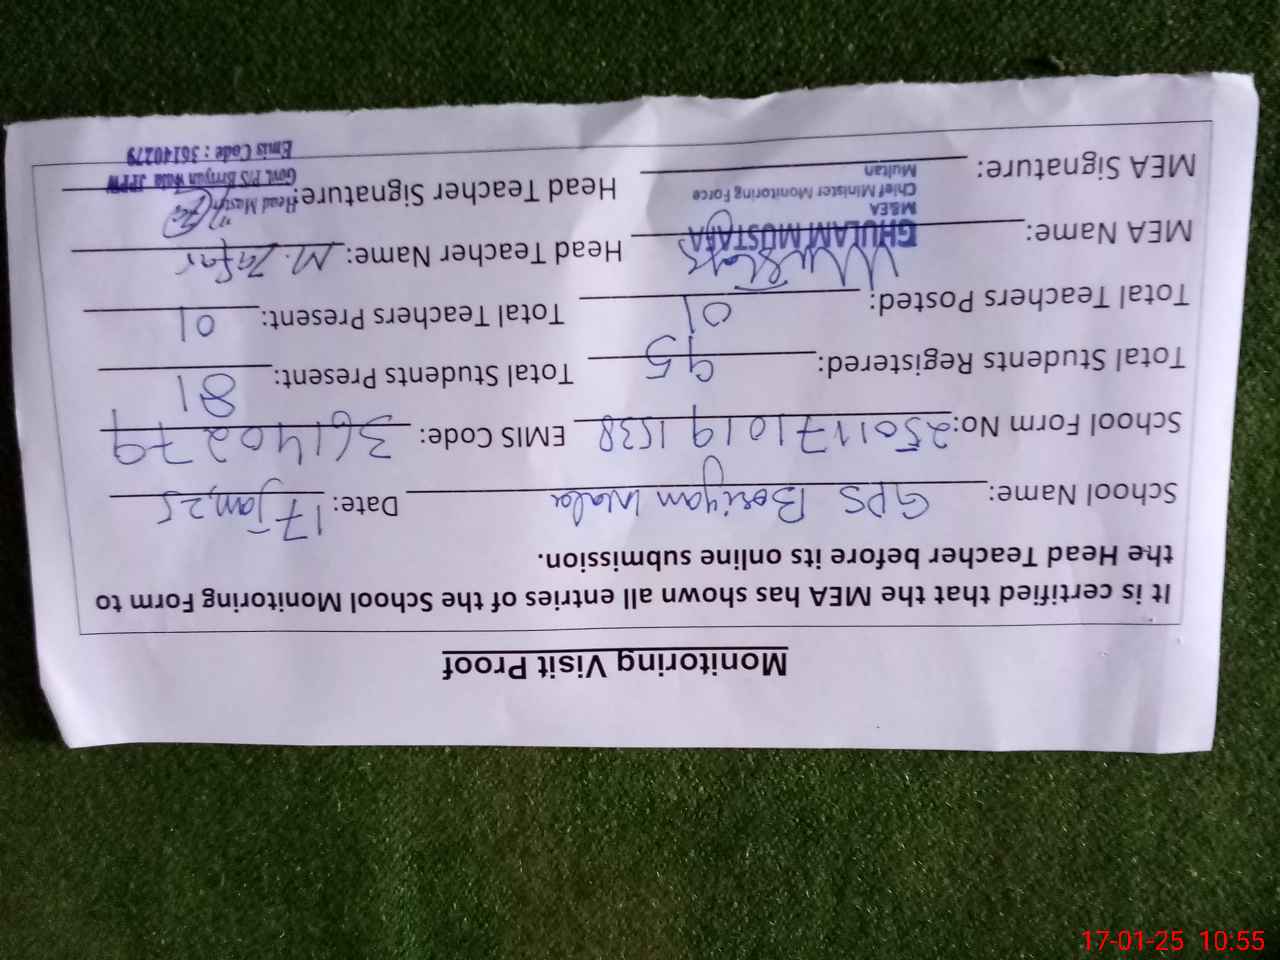 Monitoring Visit Proof
It is certified that the MEA has shown all entries of the School Monitoring Form to
the Head Teacher before its online submission.
School Name: GPS Boriyan Wala Date: 17 Jan, 25
School Form No: 25011710191538 EMIS Code: 36140279
Total Students Registered: 95 Total Students Present: 81
Total Teachers Posted: 01 Total Teachers Present: 01
MEA Name: GHULAM MUSTAFA Head Teacher Name: M. Zafar
M&EA
Chief Minister Monitoring Force
Multan
MEA Signature: Head Teacher Signature:
Head Master
Govt. P/S Wala JPPW
Emis Code : 36140279
17-01-25 10:55